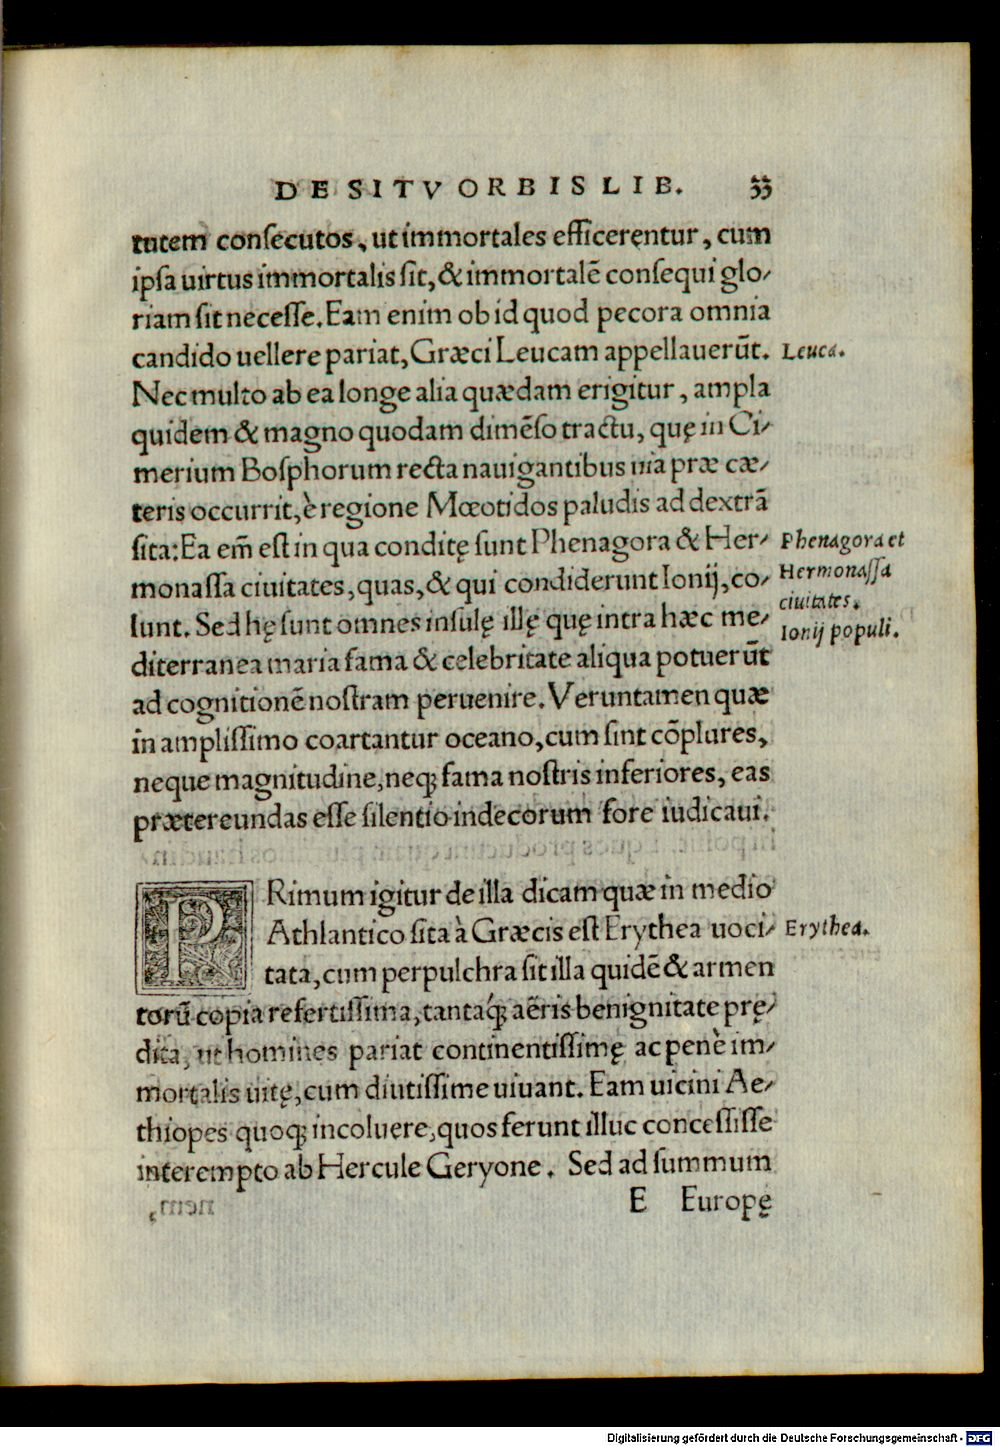 DE SITV ORBIS LIB. 33
tutem conſecutos, ut immortales efficerẹntur, cum
ipſa uirtus immortalis ſit, & immortalē conſequi glo-
riam ſit neceſſe. Eam enim ob id quod pecora omnia
candido uellere pariat, Græci Leucam appellauerūt. Leuca.
Nec multo ab ea longe alia quædam erigitur, ampla
quidem & magno quodam dimēſo tractu, quę in Ci-
merium Boſphorum recta nauigantibus uia præ cæ-
teris occurrit, è regione Mœotidos paludis ad dextrā
ſita: Ea em̄ eſt in qua conditę ſunt Phenagora & Her- Phenagora et
monaſſa ciuitates, quas, & qui condiderunt Ionij, co- Hermonaſſa
ciuitates.
lunt. Sed hę ſunt omnes inſulę illę quę intra hæc me- Ionij populi.
diterranea maria fama & celebritate aliqua potuerūt
ad cognitionē noſtram peruenire. Veruntamen quæ
in ampliſſimo coartantur oceano, cum ſint cōplures,
neque magnitudine, neq; fama noſtris inferiores, eas
prætereundas eſſe ſilentio indecorum fore iudicaui.
PRimum igitur de illa dicam quæ in medio
Athlantico ſita à Græcis eſt Erythea uoci- Erythea.
tata, cum perpulchra ſit illa quidē & armen
torū copia refertiſſima, tantaq́; aëris benignitate prę-
dita, ut homines pariat continentiſſimę ac penè im-
mortalis uitę, cum diutiſſime uiuant. Eam uicini Ae-
thiopes quoq; incoluere, quos ferunt illuc conceſſiſſe
interempto ab Hercule Geryone. Sed ad ſummum
E Europę
Digitalisierung gefördert durch die Deutsche Forschungsgemeinschaft - DFG